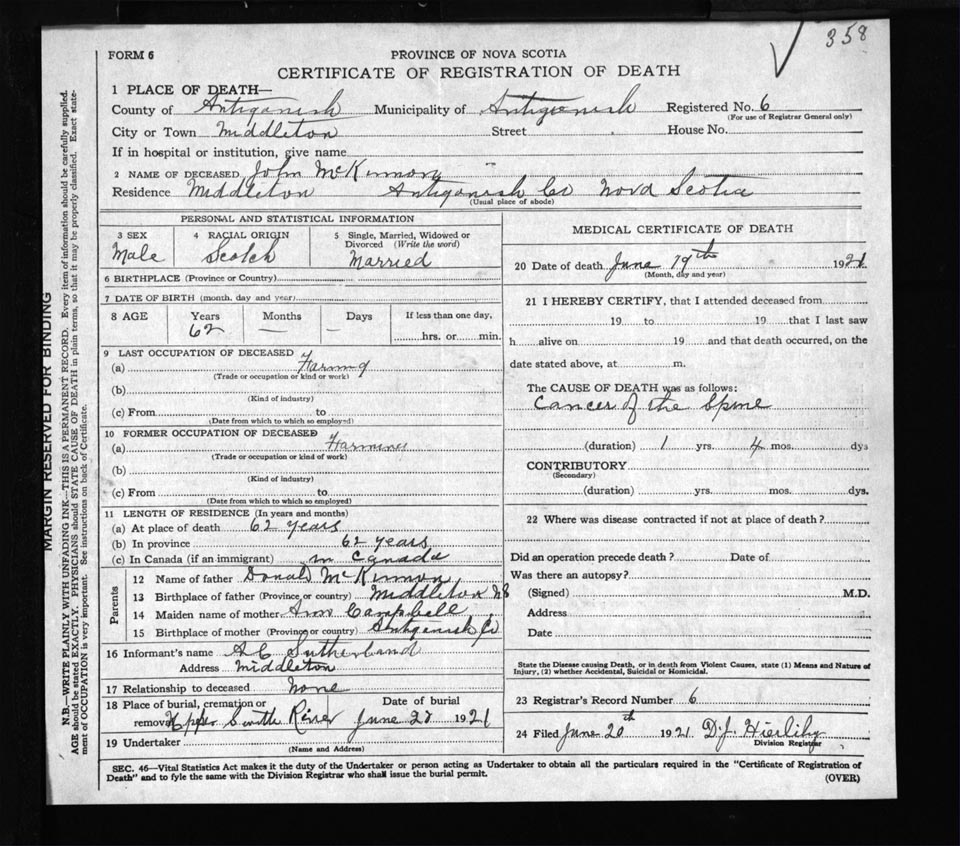 358
FORM 6
PROVINCE OF NOVA SCOTIA
CERTIFICATE OF REGISTRATION OF DEATH
1 PLACE OF DEATH—
County of Antigonish Municipality of Antigonish Registered No. 6
(For use of Registrar General only)
City or Town Middleton Street House No.
If in hospital or institution, give name
2 NAME OF DECEASED John McKinnon
Residence Middleton Antigonish Co Nova Scotia
(Usual place of abode)
PERSONAL AND STATISTICAL INFORMATION
3 SEX 4 RACIAL ORIGIN 5 Single, Married, Widowed or Divorced (Write the word)
Male Scotch Married
6 BIRTHPLACE (Province or Country)
7 DATE OF BIRTH (month, day and year)
8 AGE Years Months Days If less than one day,
62 — — hrs. or min.
9 LAST OCCUPATION OF DECEASED
(a) Farming
(Trade or occupation or kind or work)
(b)
(Kind of industry)
(c) From to
(Date from which to which so employed)
10 FORMER OCCUPATION OF DECEASED
(a) Farming
(Trade or occupation or kind of work)
(b)
(Kind of industry)
(c) From to
(Date from which to which so employed)
11 LENGTH OF RESIDENCE (In years and months)
(a) At place of death 62 years
(b) In province 62 years
(c) In Canada (if an immigrant) in Canada
Parents
12 Name of father Donald McKinnon
13 Birthplace of father (Province or country) Middleton NS
14 Maiden name of mother Ann Campbell
15 Birthplace of mother (Province or country) Antigonish Co
16 Informant's name A C Sutherland
Address Middleton
17 Relationship to deceased none
18 Place of burial, cremation or Date of burial
removal Upper South River June 1921
19 Undertaker
(Name and Address)
MEDICAL CERTIFICATE OF DEATH
20 Date of death June 19th 1921
(Month, day and year)
21 I HEREBY CERTIFY, that I attended deceased from
19 to 19 that I last saw
h alive on 19 and that death occurred, on the
date stated above, at m.
The CAUSE OF DEATH was as follows:
Cancer of the Spine
(duration) 1 yrs. 4 mos. dys
CONTRIBUTORY
(Secondary)
(duration) yrs. mos. dys.
22 Where was disease contracted if not at place of death?
Did an operation precede death? Date of
Was there an autopsy?
(Signed) M.D.
Address
Date
State the Disease causing Death, or in death from Violent Causes, state (1) Means and Nature of
Injury, (2) whether Accidental, Suicidal or Homicidal.
23 Registrar's Record Number 6
24 Filed June 20th 1921 D.J. Hierlihy
Division Registrar
SEC. 46—Vital Statistics Act makes it the duty of the Undertaker or person acting as Undertaker to obtain all the particulars required in the "Certificate of Registration of
Death" and to fyle the same with the Division Registrar who shall issue the burial permit. (OVER)
MARGIN RESERVED FOR BINDING
N.B.—WRITE PLAINLY WITH UNFADING INK—THIS IS A PERMANENT RECORD. Every item of information should be carefully supplied.
AGE should be stated EXACTLY. PHYSICIANS should STATE CAUSE OF DEATH in plain terms, so that it may be properly classified. Exact state-
ment of OCCUPATION is very important. See instructions on back of Certificate.